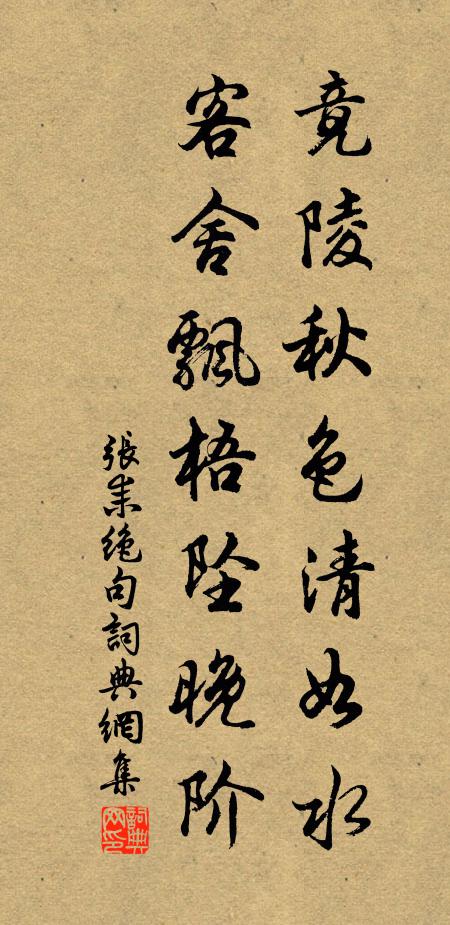 竟陵秋色清如水
客舍飄梧坠晚阶
張耒绝句詞典網集
詞典网印